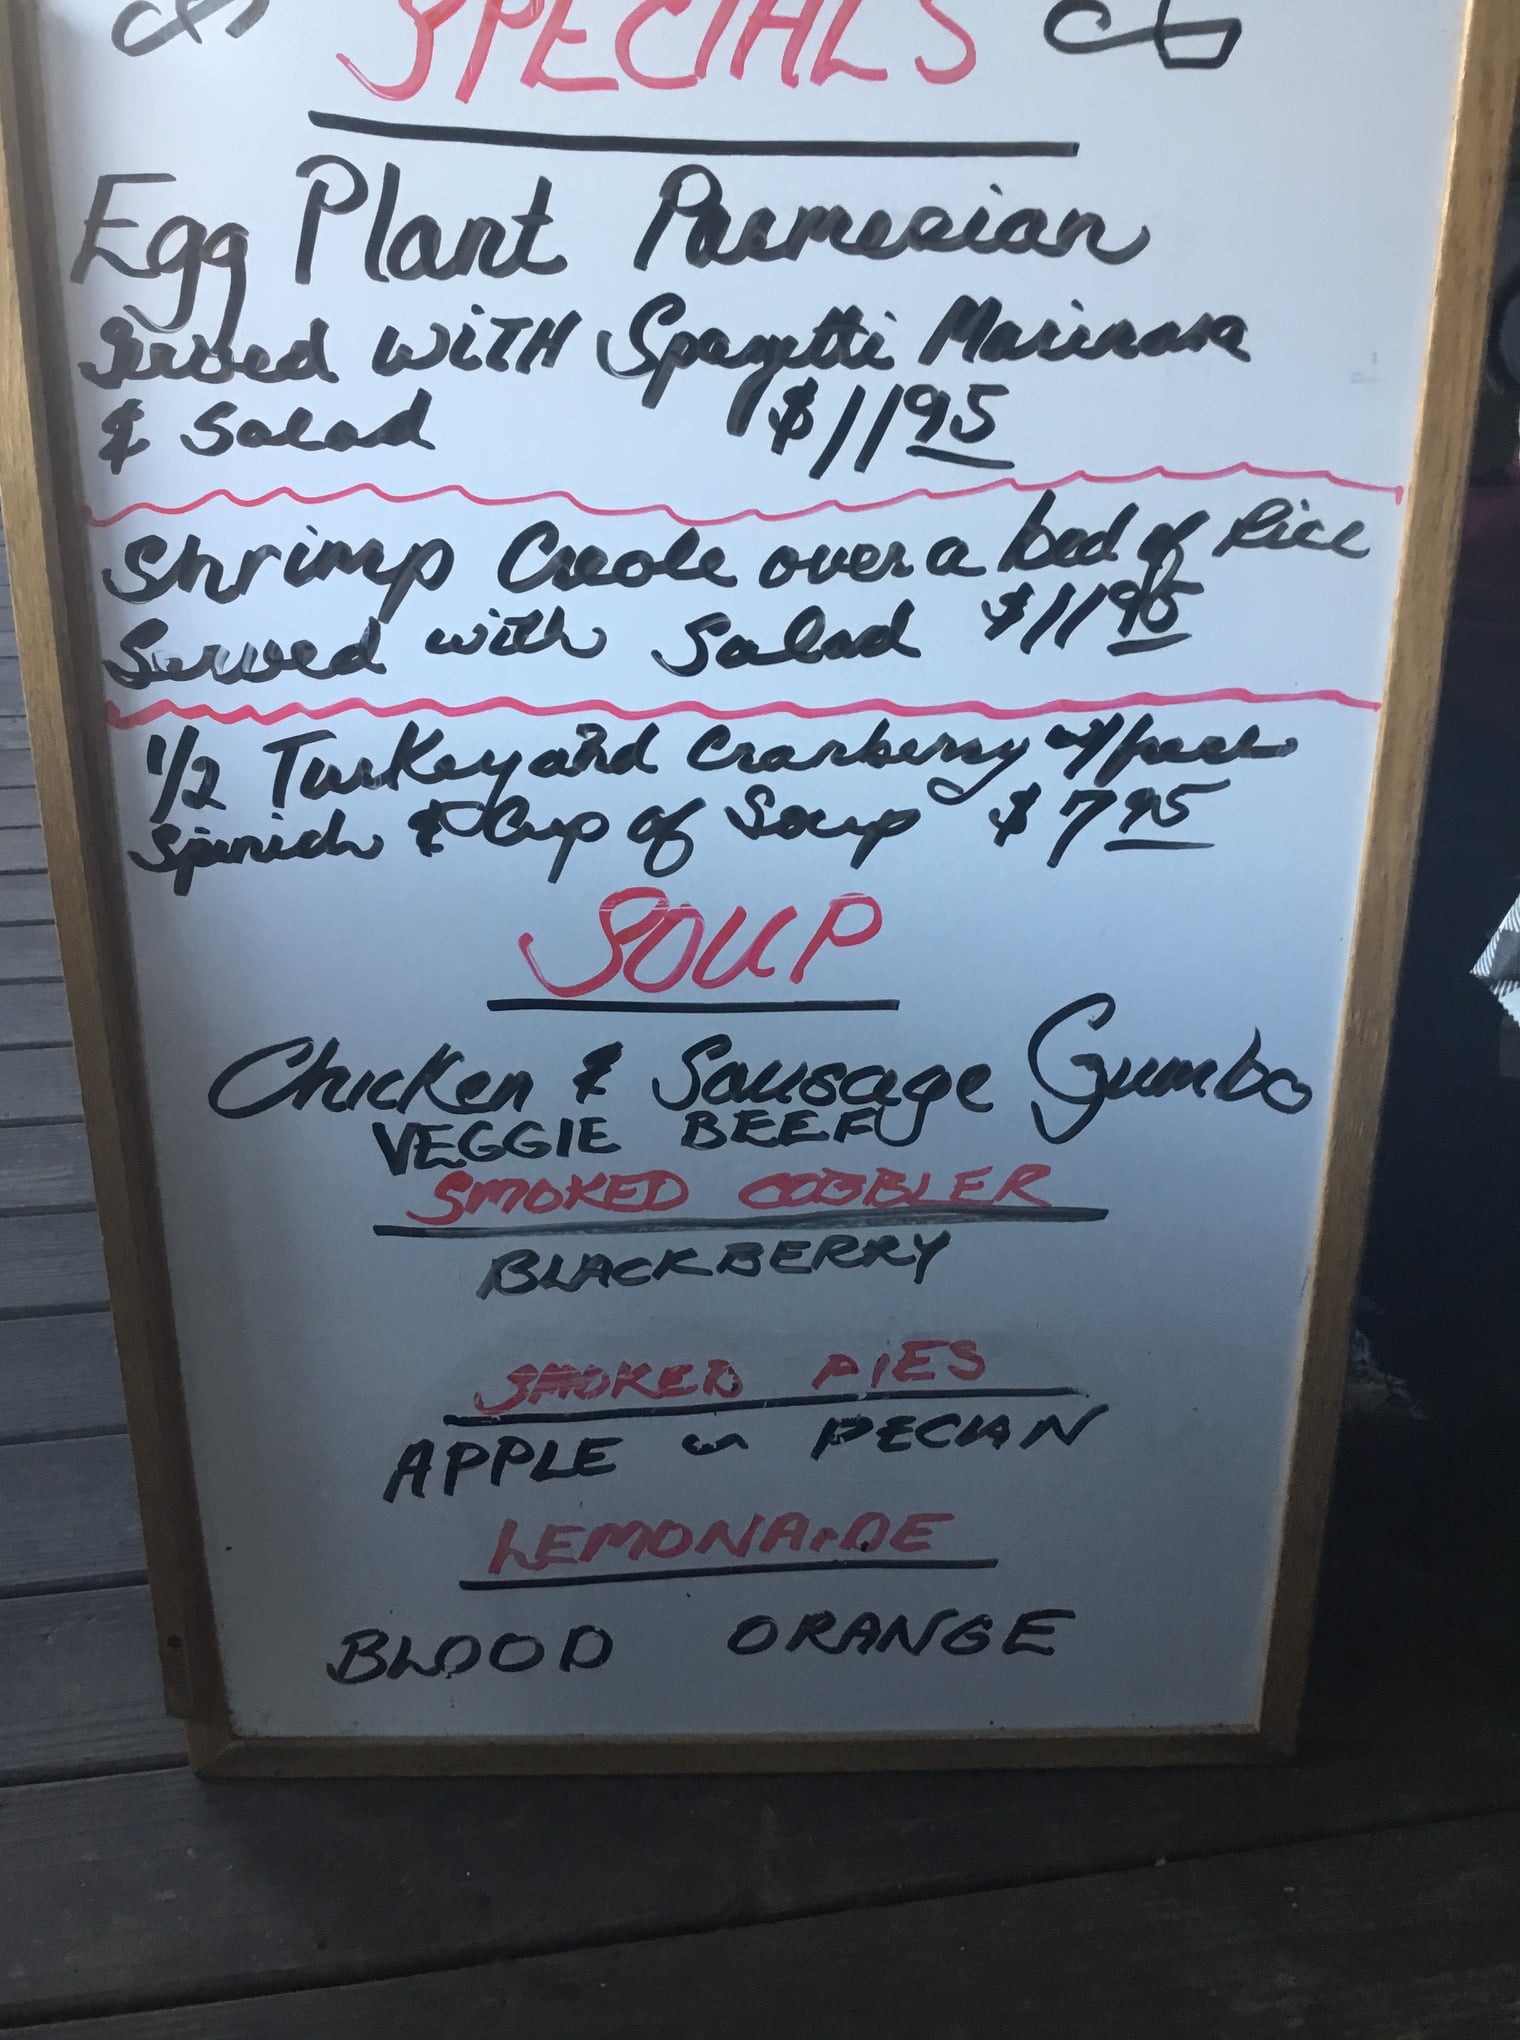 SPECIALS
Egg Plant Parmesian
Served WITH Spagetti Marinara
& Salad $11.95
Shrimp Creole over a bed of Rice
Served with Salad $11.95
1/2 Turkey and Cranberry w/fresh
Spinich & Cup of Soup $7.95
SOUP
Chicken & Sausage Gumbo
VEGGIE BEEF
SMOKED COBBLER
BLACKBERRY
SMOKED PIES
APPLE or PECAN
LEMONAIDE
BLOOD ORANGE